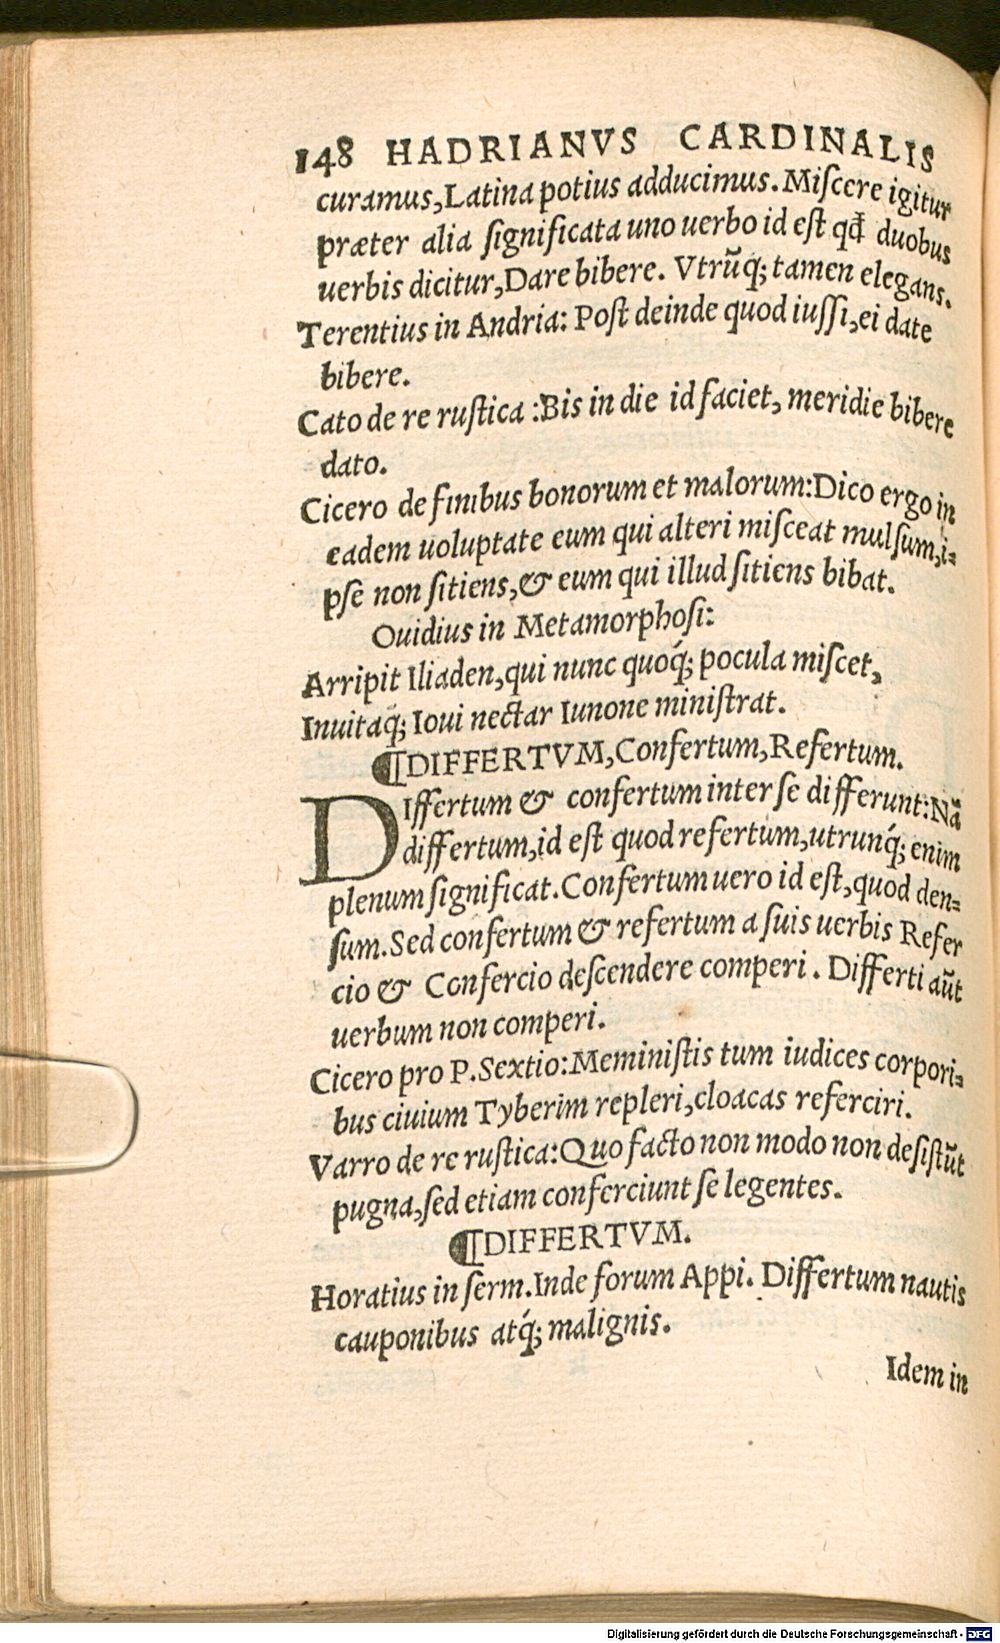 148 HADRIANVS CARDINALIS
curamus,Latina potius adducimus.Miſcere igitur
præter alia ſignificata uno uerbo id eſt qđ duobus
uerbis dicitur,Dare bibere. Vtrũq; tamen elegans.
Terentius in Andria: Poſt deinde quod iuſſi,ei date
bibere.
Cato de re ruſtica :Bis in die id faciet, meridie bibere
dato.
Cicero de finibus bonorum et malorum:Dico ergo in
eadem uoluptate eum qui alteri miſceat mulſum,i=
pſe non ſitiens,& eum qui illud ſitiens bibat.
Ouidius in Metamorphoſi:
Arripit Iliaden,qui nunc quoq́; pocula miſcet,
Inuitaq́; Ioui nectar Iunone miniſtrat.
¶DIFFERTVM,Confertum,Refertum.
DIffertum & confertum inter ſe differunt:Nã
differtum,id eſt quod refertum,utrunq́; enim
plenum ſignificat.Confertum uero id eſt,quod den=
ſum.Sed confertum & refertum a ſuis uerbis Refer
cio & Confercio deſcendere comperi. Differti aũt
uerbum non comperi.
Cicero pro P.Sextio:Meminiſtis tum iudices corpori=
bus ciuium Tyberim repleri,cloacas referciri.
Varro de re ruſtica:Quo facto non modo non deſiſtũt
pugna,ſed etiam conferciunt ſe legentes.
¶DIFFERTVM.
Horatius in ſerm.Inde forum Appi. Differtum nautis
cauponibus atq́; malignis.
Idem in
Digitalisierung gefördert durch die Deutsche Forschungsgemeinschaft - DFG